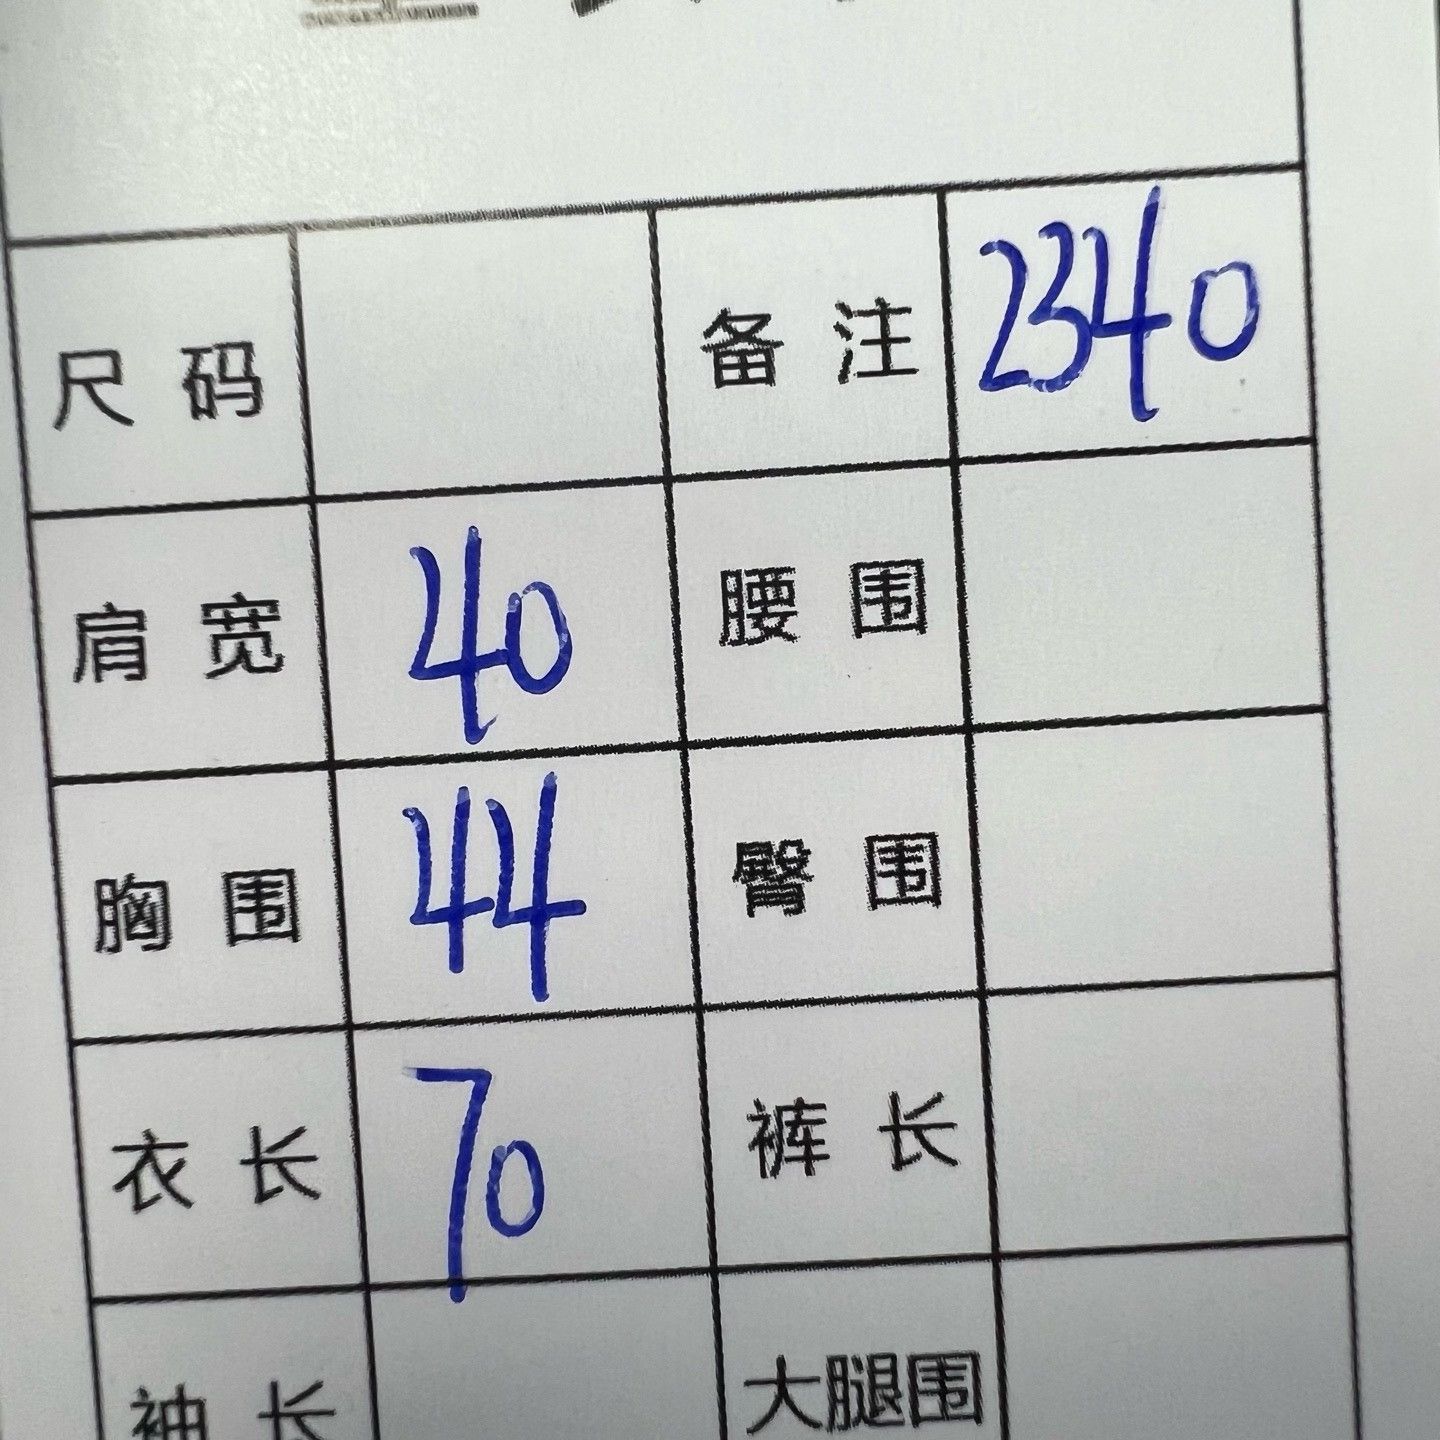 尺码 备注 2340
肩宽 40 腰围
胸围 44 臀围
衣长 70 裤长
袖长 大腿围